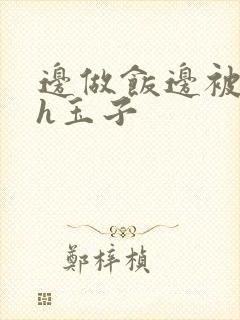 邊做飯邊被
h玉子
鄭梓楨